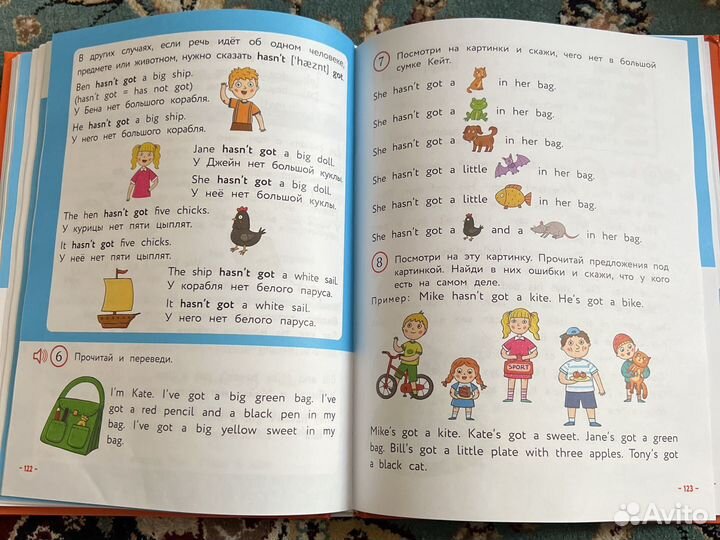 В других случаях, если речь идёт об одном человеке,
предмете или животном, нужно сказать hasn't ['hæznt] got.
Ben hasn't got a big ship.
(hasn't got = has not got)
У Бена нет большого корабля.
He hasn't got a big ship.
У него нет большого корабля.
Jane hasn't got a big doll.
У Джейн нет большой куклы.
She hasn't got a big doll.
У неё нет большой куклы.
The hen hasn't got five chicks.
У курицы нет пяти цыплят.
It hasn't got five chicks.
У неё нет пяти цыплят.
The ship hasn't got a white sail.
У корабля нет белого паруса.
It hasn't got a white sail.
У него нет белого паруса.
6 Прочитай и переведи.
I'm Kate. I've got a big green bag. I've
got a red pencil and a black pen in my
bag. I've got a big yellow sweet in my
bag.
- 122 -
7 Посмотри на картинки и скажи, чего нет в большой
сумке Кейт.
She hasn't got a in her bag.
She hasn't got a in her bag.
She hasn't got a in her bag.
She hasn't got a little in her bag.
She hasn't got a little in her bag.
She hasn't got a and a in her bag.
8 Посмотри на эту картинку. Прочитай предложения под
картинкой. Найди в них ошибки и скажи, что у кого
есть на самом деле.
Пример: Mike hasn't got a kite. He's got a bike.
SPORT
Mike's got a kite. Kate's got a sweet. Jane's got a green
bag. Bill's got a little plate with three apples. Tony's got
a black cat.
- 123 -
Avito